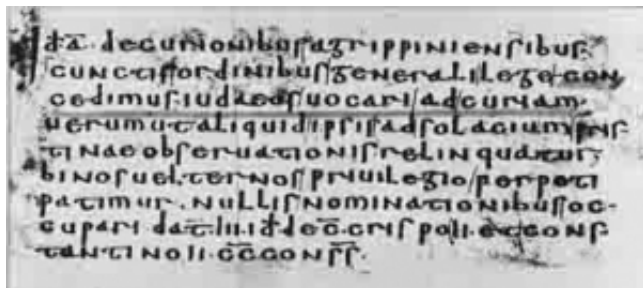 d̄a̅. decurionibus agrippiniensibus.
cunctis ordinibus generali lege con
cedimus iudaeos uocari ad curiam.
uerum ut aliquid ipsis ad solacium pris
tinae obseruationis relinquatur.
binos uel ternos priuilegio perpeti
patimur. nullis nominationibus oc-
cupari dat̅. iii. id̅ dec̅. crispo ii. et cons
tantino ii. c̅c̅ cons̅s̅.